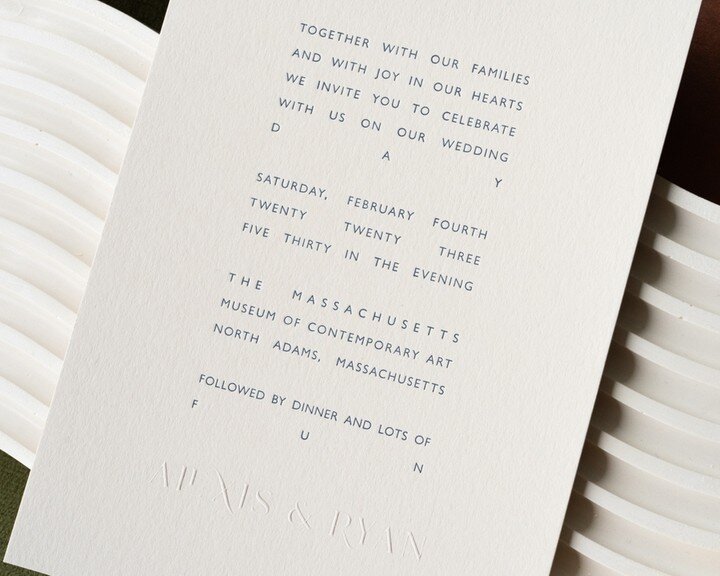 TOGETHER WITH OUR FAMILIES
AND WITH JOY IN OUR HEARTS
WE INVITE YOU TO CELEBRATE
WITH US ON OUR WEDDING
D A Y
SATURDAY, FEBRUARY FOURTH
TWENTY TWENTY THREE
FIVE THIRTY IN THE EVENING
THE MASSACHUSETTS
MUSEUM OF CONTEMPORARY ART
NORTH ADAMS, MASSACHUSETTS
FOLLOWED BY DINNER AND LOTS OF
F U N
ALEXIS & RYAN